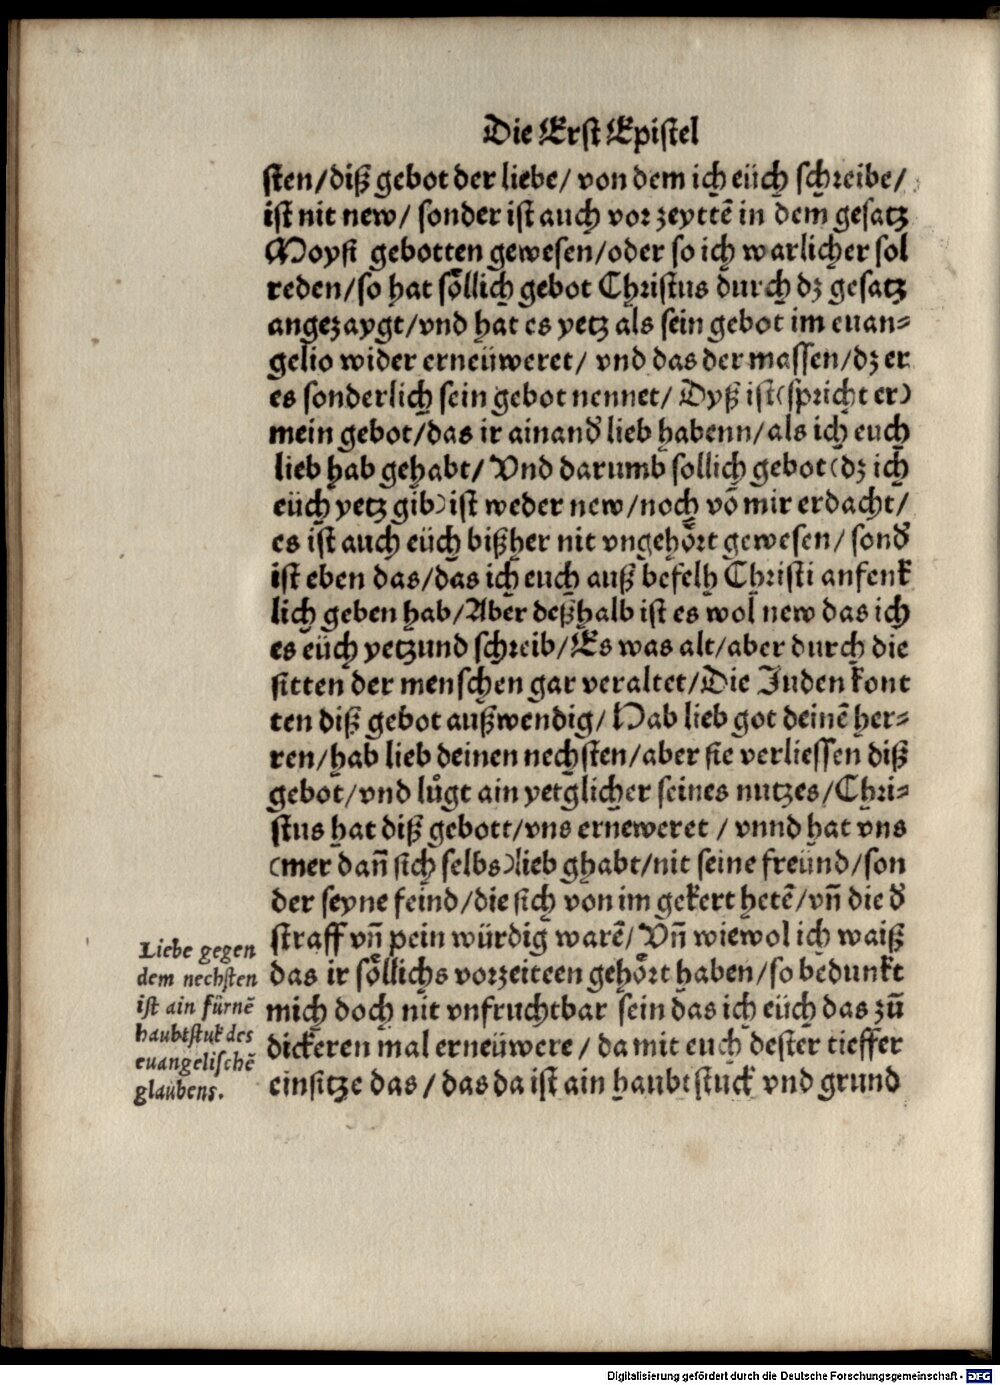 Die Erst Epistel
sten/diß gebot der liebe/ von dem ich eüch schreibe/
ist nit new/ sonder ist auch vor zeyttē in dem gesatz
Moysi gebotten gewesen/oder so ich warlicher sol
reden/so hat soͤllich gebot Christus durch dz gesatz
angezaygt/vnd hat es yetz als sein gebot im euan-
gelio wider erneüweret/ vnd das der massen/dz er
es sonderlich sein gebot nennet/ Dyß ist(spricht er)
mein gebot/das ir ainand̛ lieb habenn/als ich euch
lieb hab gehabt/ Vnd darumb sollich gebot(dz ich
eüch yetz gib)ist weder new/noch vō mir erdacht/
es ist auch eüch bißher nit vngehoͤrt gewesen/ sond̛
ist eben das/das ich euch auß befelh Christi anfenk
lich geben hab/Aber deßhalb ist es wol new das ich
es eüch yetzund schreib/Es was alt/aber durch die
sitten der menschen gar veraltet/Die Juden kont
ten diß gebot außwendig/ Hab lieb got deinē her-
ren/hab lieb deinen nechsten/aber sie verliessen diß
gebot/vnd luͦgt ain yetglicher seines nutzes/Chri-
stus hat diß gebott/vns erneweret / vnnd hat vns
(mer dañ sich selbs)lieb ghabt/nit seine freünd/son
der seyne feind/die sich von im gekert hetē/vñ die d̛
straff vñ pein würdig warē/ Vñ wiewol ich waiß
das ir soͤllichs vorzeiteen gehoͤrt haben/so bedunkt
mich doch nit vnfruchtbar sein das ich eüch das zuͦ
dickeren mal erneüwere / da mit euch dester tieffer
einsitze das / das da ist ain haubtstuck vnd grund
Liebe gegen
dem nechsten
ist ain fürnē
haubtstuk des
euangelischē
glaubens.
Digitalisierung gefördert durch die Deutsche Forschungsgemeinschaft - DFG